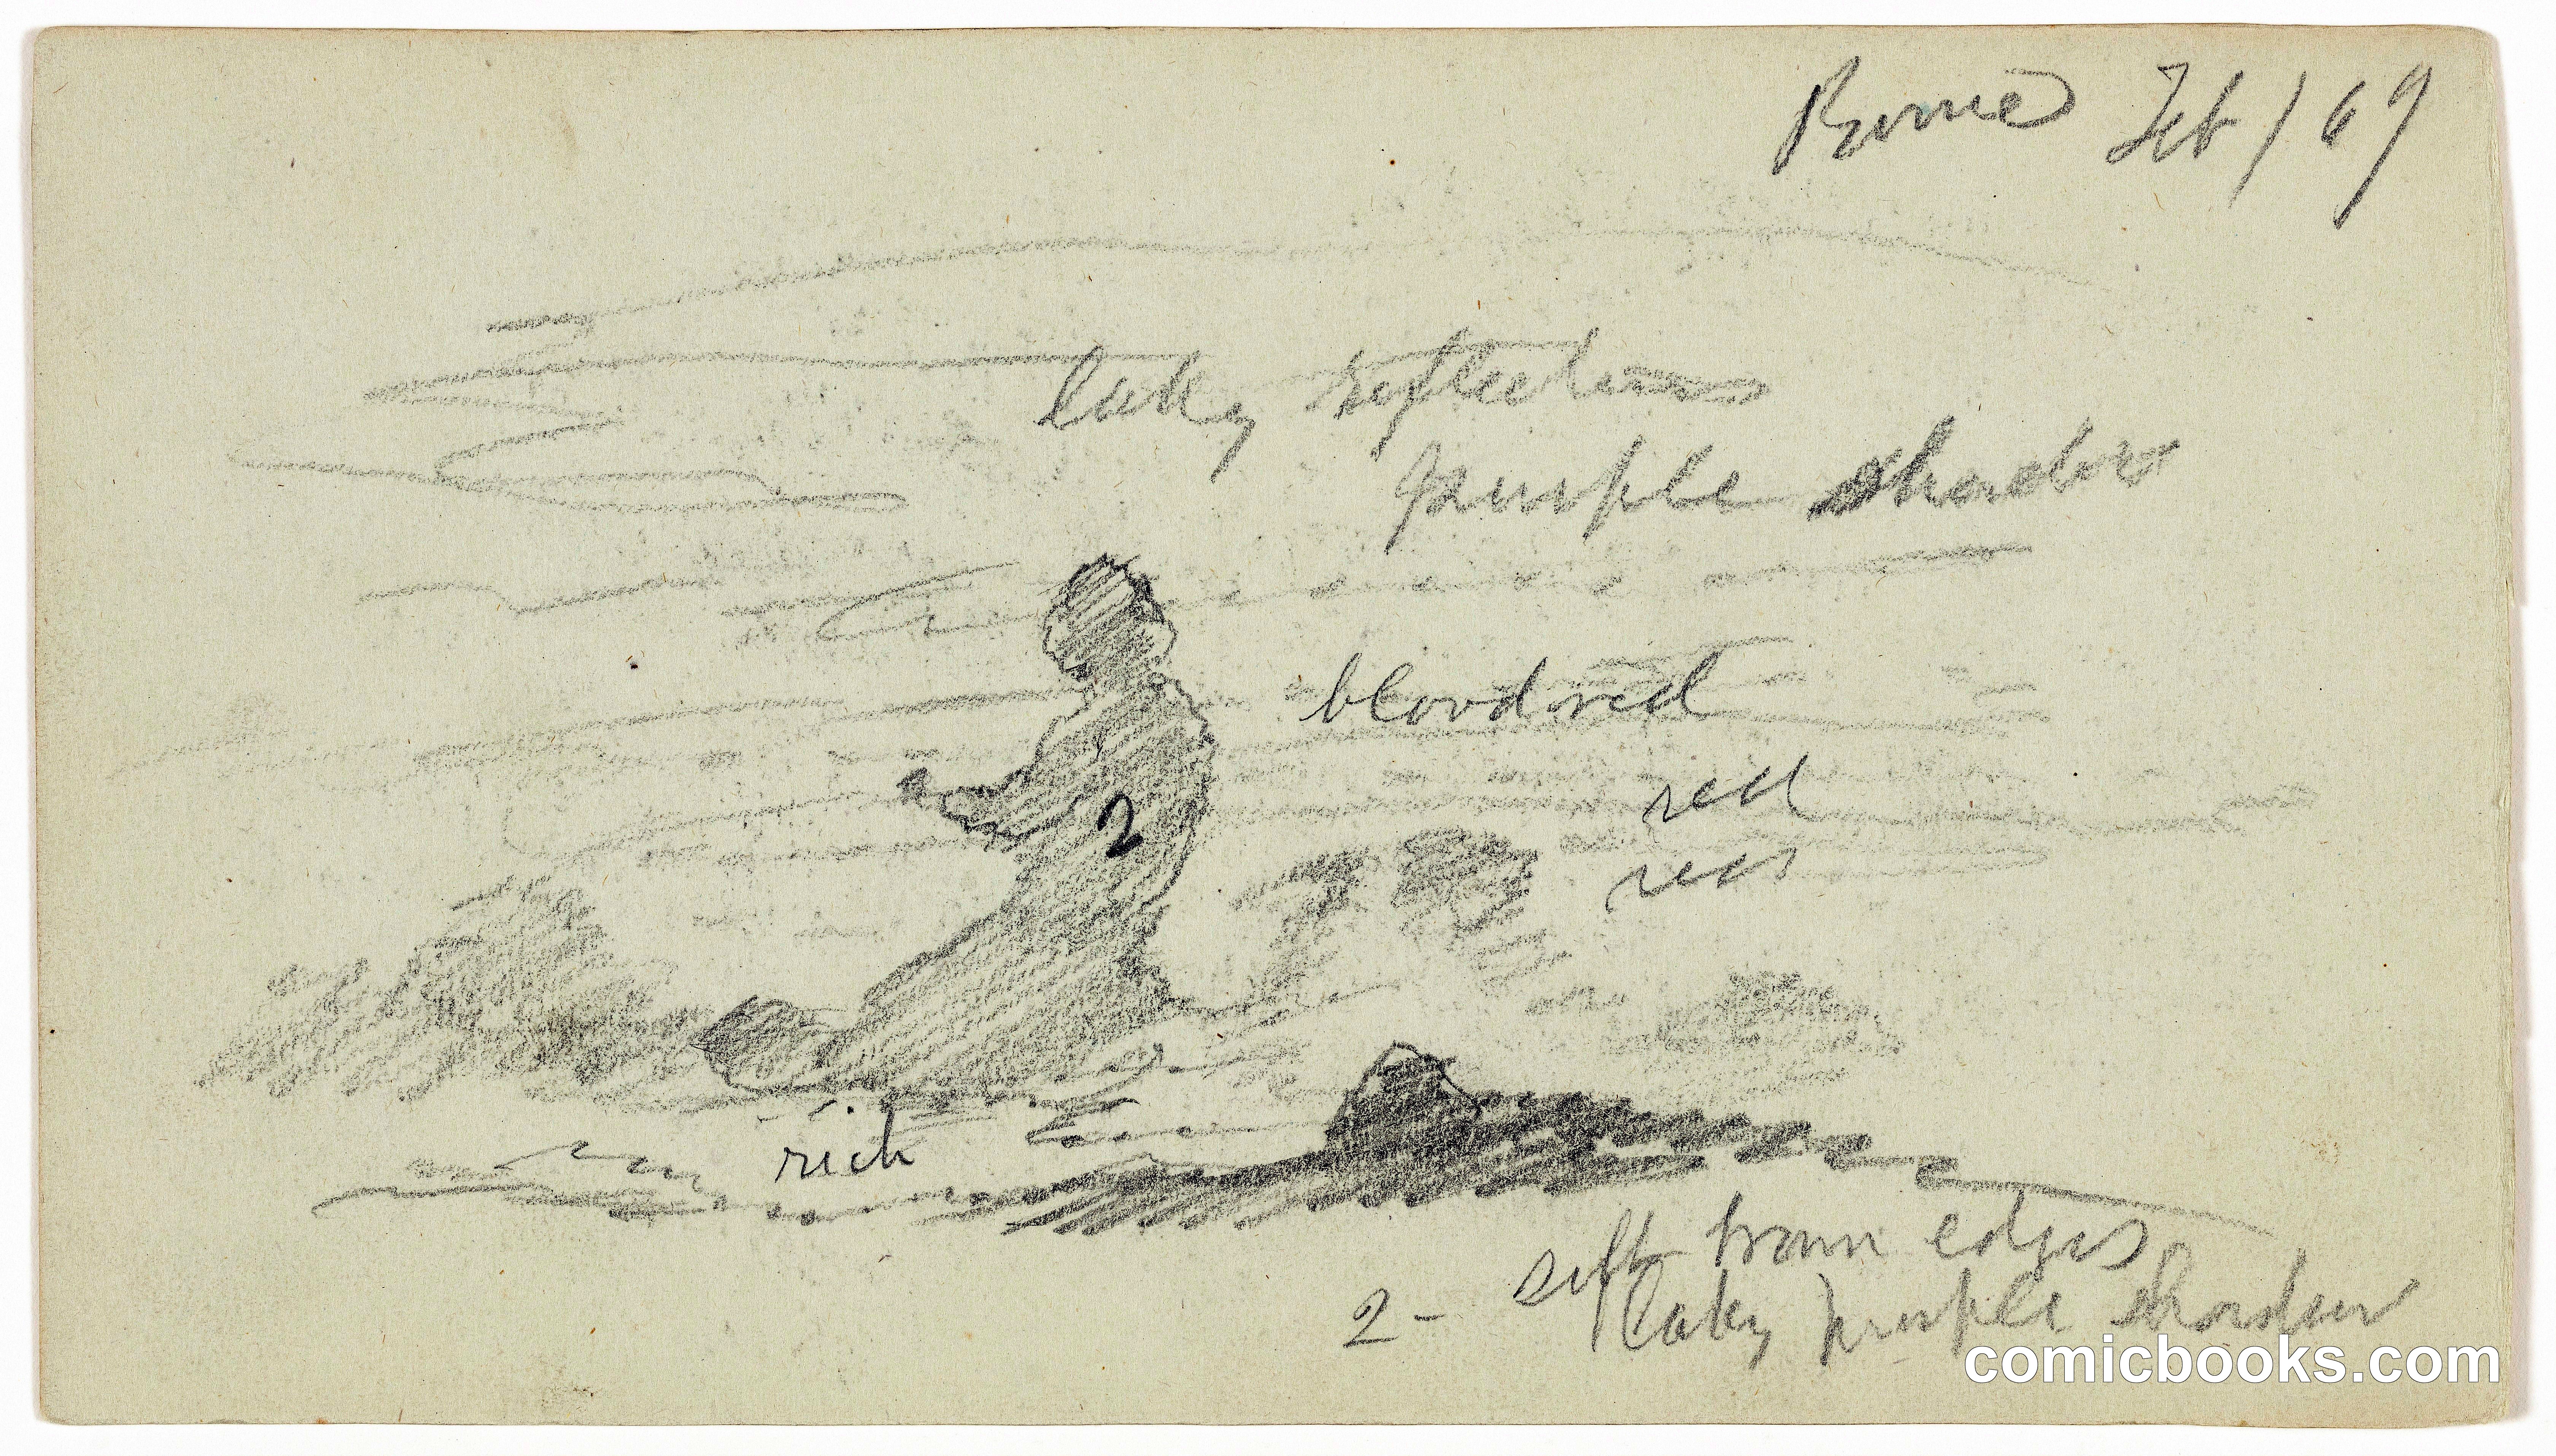 Rome Feb / 69
laky reflections
purple shadow
blood red
red
red
2
rich
soft warm edges
2 - laky purple shadow
comicbooks.com